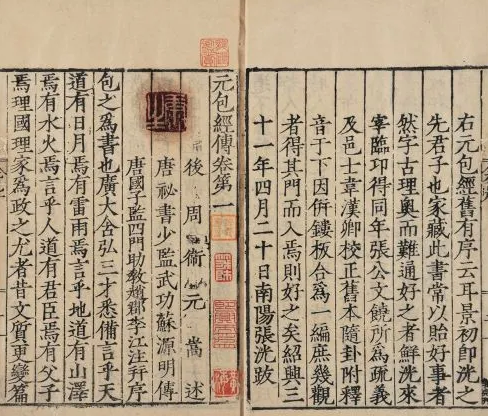 右元包經舊有序云耳景初即洗之
先君子也家藏此書常以貽好事者
然字古理奧而難通好之者鮮洗來
宰臨卭得同年張公文饒所爲疏義
及邑士韋漢卿校正舊本隨卦附釋
音于下因併鏤板合爲一編庶幾觀
者得其門而入焉則好之矣紹興三
十一年四月二十日南陽張洗跋
元包經傳卷第一
後周衛元嵩述
唐祕書少監武功蘇源明傳
唐國子監四門助教趙郡李江注并序
包之爲書也廣大含弘三才悉備言乎天
道有日月焉有雷雨焉言乎地道有山澤
焉有水火焉言乎人道有君臣焉有父子
焉理國理家爲政之尤者昔文質更變篇